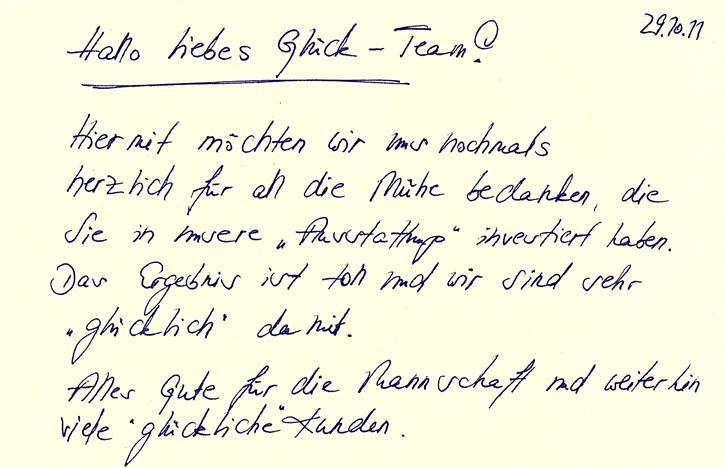 29.10.11
Hallo liebes Glück-Team!
Hiermit möchten wir uns nochmals
herzlich für all die Mühe bedanken, die
Sie in unsere „Ausstattung“ investiert haben.
Das Ergebnis ist toll und wir sind sehr
„glücklich“ damit.
Alles Gute für die Mannschaft und weiterhin
viele "glückliche" Kunden.